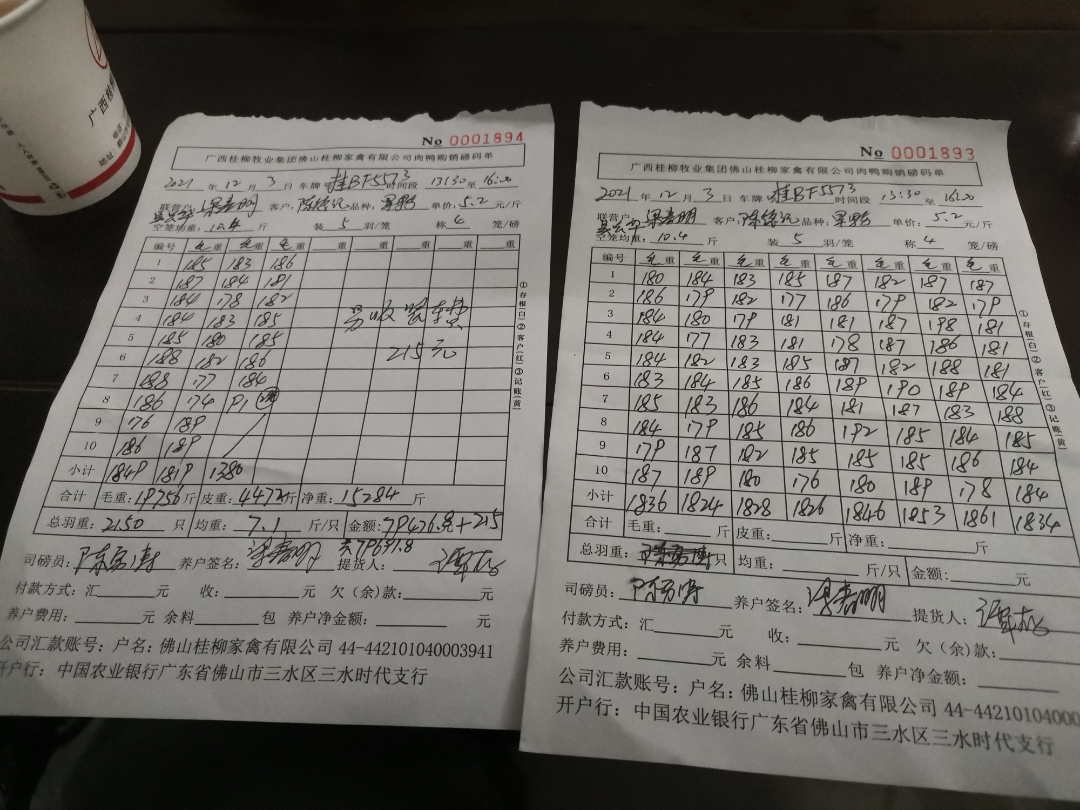 广西桂柳
No 0001894
广西桂柳牧业集团佛山桂柳家禽有限公司肉鸭购销磅码单
2021年12月3日 车牌 桂BF5573 时间段 13:30至16:20
联营户: 客户: 品种: 单价:5.2元/斤
空笼均重:10.4斤 装5羽/笼 称4笼/磅
编号 毛重 毛重 毛重 重 重 重 重 重
1 185 183 186
2 187 184 181
3 184 178 182
4 184 183 185
5 185 180 185
6 188 182 186
7 188 177 184
8 186 174 91
9 176 189
10 186 189
小计 1849 1819 1380
另收装车费
215元
合计 毛重:19756斤 皮重:4472斤 净重:15284斤
总羽重:2150只 均重:7.1斤/只 金额:79476.8+215
=79691.8
司磅员: 养户签名: 提货人:
付款方式:汇 元 收: 元 欠(余)款: 元
养户费用: 元 余料 包 养户净金额: 元
公司汇款账号:户名:佛山桂柳家禽有限公司 44-442101040003941
开户行:中国农业银行广东省佛山市三水区三水时代支行
①存根(白)②客户(红)③记账(黄)
No 0001893
广西桂柳牧业集团佛山桂柳家禽有限公司肉鸭购销磅码单
2021年12月3日 车牌 桂BF5573 时间段 13:30至16:20
联营户: 客户: 品种: 单价:5.2元/斤
空笼均重:10.4斤 装5羽/笼 称4笼/磅
编号 毛重 毛重 毛重 毛重 毛重 毛重 毛重 毛重
1 180 184 183 185 187 182 187 187
2 186 179 182 177 186 179 182 179
3 184 180 179 181 181 187 198 181
4 184 177 183 181 178 187 186 181
5 184 182 183 185 187 182 188 181
6 183 184 185 186 189 190 189 184
7 185 183 186 184 181 187 183 188
8 184 179 185 186 192 185 184 185
9 179 187 182 185 185 185 186 184
10 187 189 180 176 180 189 178 184
小计 1836 1824 1828 1826 1846 1853 1861 1834
合计 毛重: 斤 皮重: 斤 净重: 斤
总羽重: 只 均重: 斤/只 金额: 元
司磅员: 养户签名: 提货人:
付款方式:汇 元 收: 元 欠(余)款:
养户费用: 元 余料 包 养户净金额:
公司汇款账号:户名:佛山桂柳家禽有限公司 44-44210104000
开户行:中国农业银行广东省佛山市三水区三水时代支行
①存根(白)②客户(红)③记账(黄)